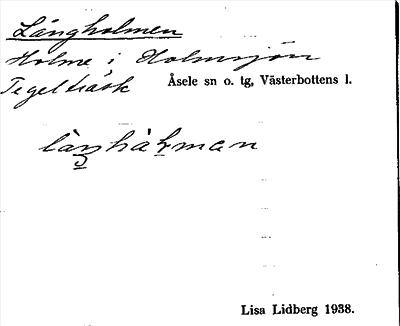 Långholmen
Holme i Holmsjön
Tegelträsk
Åsele sn o. tg, Västerbottens l.
Lisa Lidberg 1938.